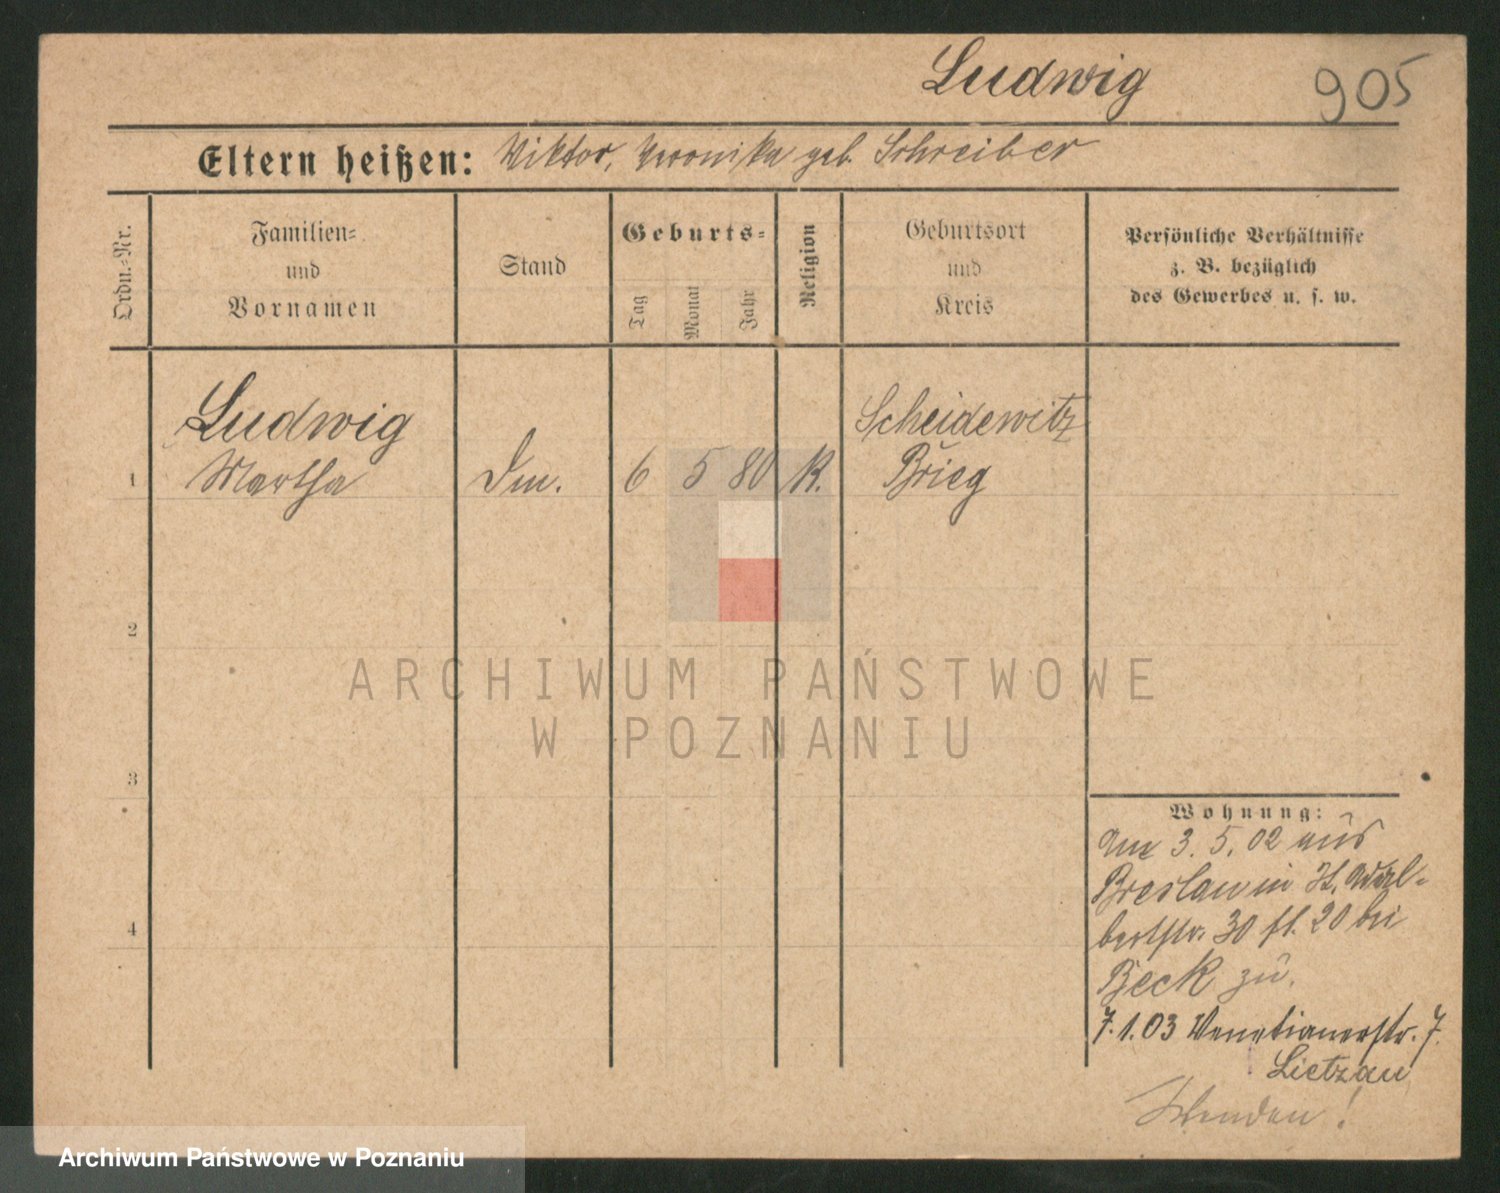 Ludwig 905
Eltern heißen: Viktor, Veronika geb. Schreiber
Ordn.-Nr.
Familien-
und
Vornamen
Stand
Geburts-
Tag
Monat
Jahr
Religion
Geburtsort
und
Kreis
Persönliche Verhältnisse
z. B. bezüglich
des Gewerbes u. s. w.
Ludwig Scheidewitz
1 Martha Dm. 6 5 80 K. Brieg
2
3
4
ARCHIWUM PAŃSTWOWE
W POZNANIU
Wohnung:
Am 3. 5. 02 aus
Breslau in St. Adal-
bertstr. 30 fl. 20 bei
Beck zu.
7. 1. 03 Venetianerstr. 7.
Lietzau
Wenden!
Archiwum Państwowe w Poznaniu